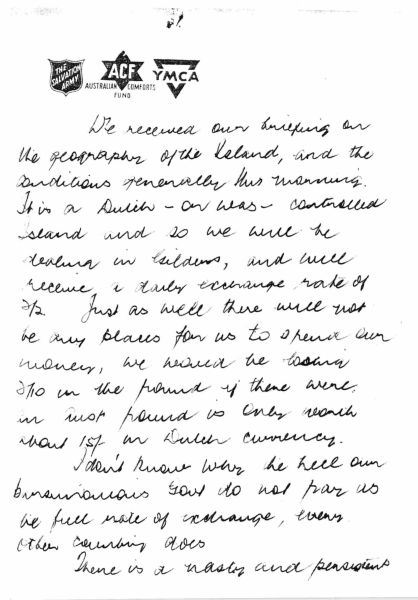 THE SALVATION ARMY
ACF
AUSTRALIAN COMFORTS FUND
YMCA
We received our briefing on
the geography of the Island, and the
conditions generally this morning.
It is a Dutch – or was – controlled
island and so we will be
dealing in Guilders, and will
receive a daily exchange rate of
Just as well there will not
be any places for us to spend our
money, we would be losing
in the pound if there were,
pound is only worth
about 15/ in Dutch currency.
I don't know why the hell our
Govt do not pay us
the full rate of exchange, every
other country does
There is a nasty and persistent